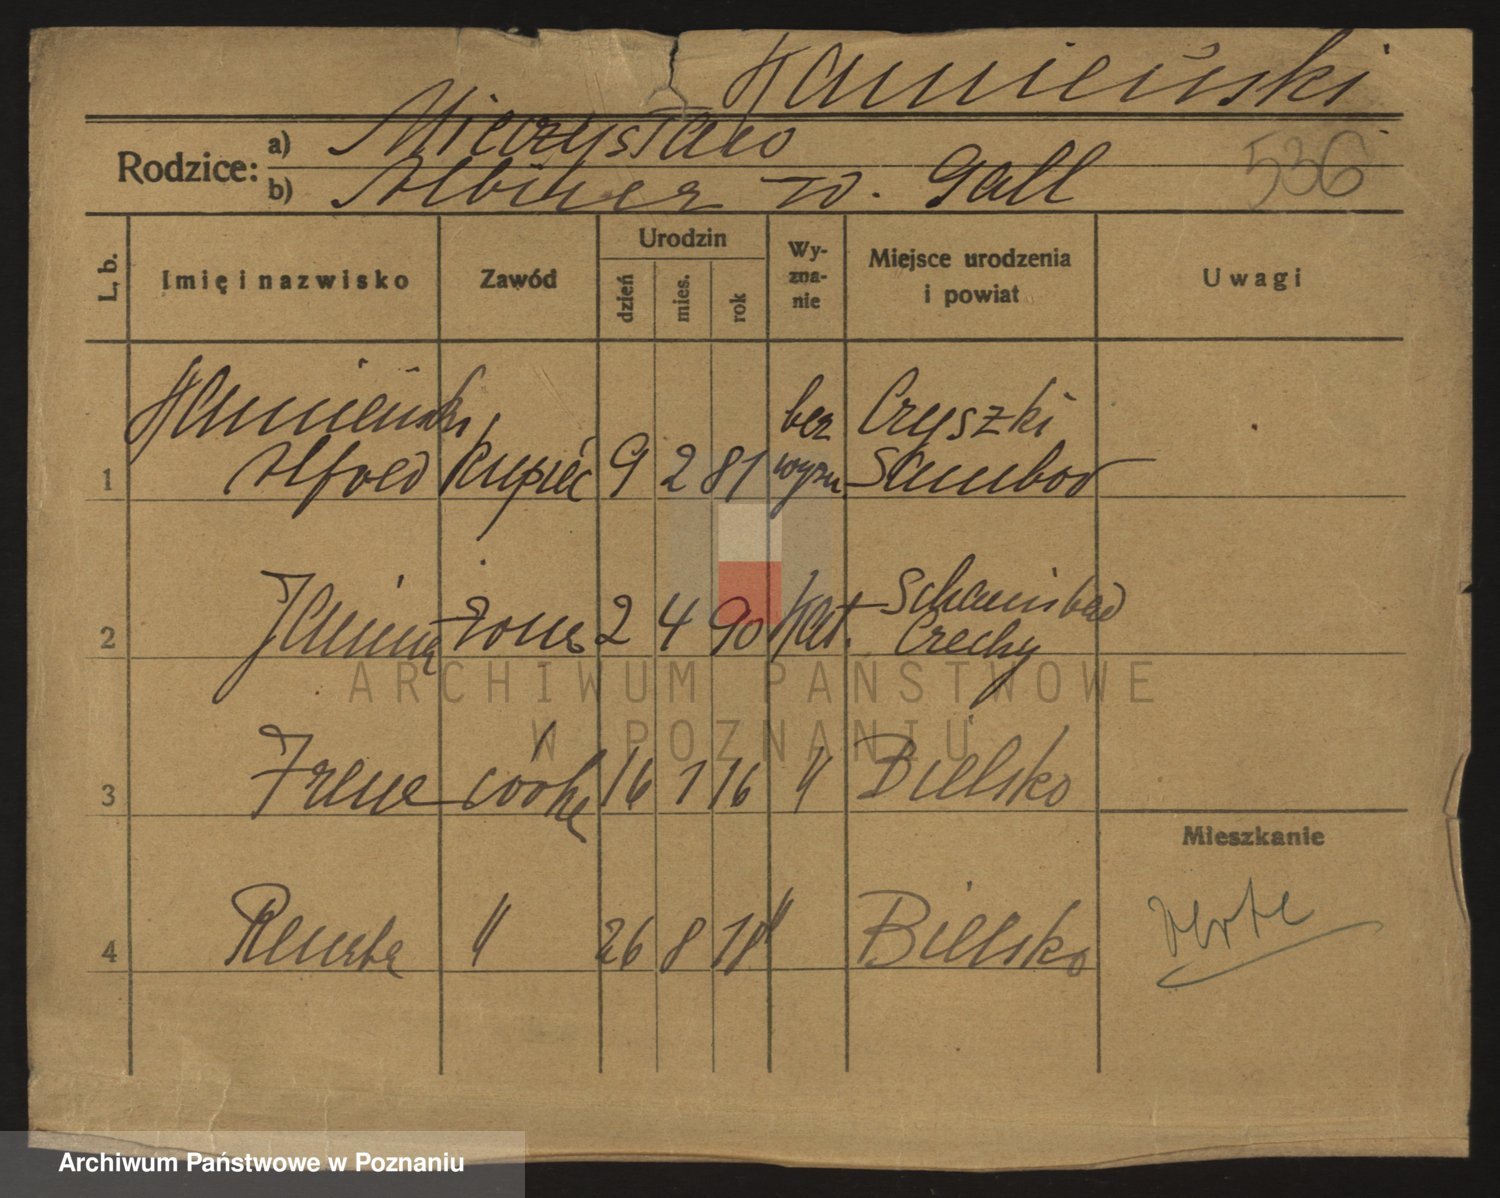 Kamieński
Rodzice: a) Mieczysław
b) Albina z d. Gall
536
L. b. Imię i nazwisko Zawód Urodzin dzień mies. rok Wy-zna-nie Miejsce urodzenia i powiat Uwagi
Kamieński bez Czyszki
1 Alfred kupiec 9 2 81 wyzn. Sambor
Schönbad
2 Janina żona 2 4 90 kat. Czechy
3 Irena córka 16 1 16 " Bielsko
Mieszkanie
4 Renata " 26 8 18 " Bielsko
verte
ARCHIWUM PAŃSTWOWE
W POZNANIU
Archiwum Państwowe w Poznaniu